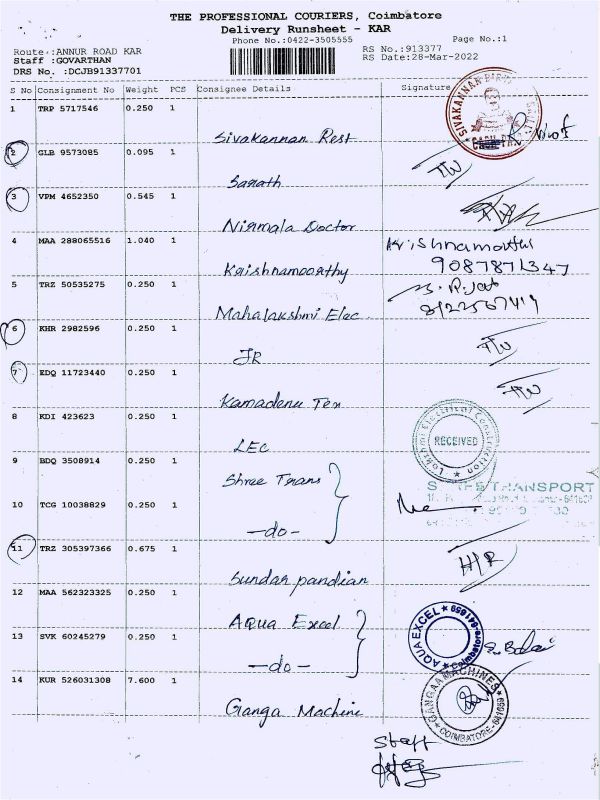 THE PROFESSIONAL COURIERS, Coimbatore
Delivery Runsheet - KAR
Phone No.:0422-3505555
Page No.:1
Route.:ANNUR ROAD KAR
RS No.:913377
Staff :GOVARTHAN
RS Date:28-Mar-2022
DRS No. :DCJB91337701
S No Consignment No Weight PCS Consignee Details Signature
1 TRP 5717546 0.250 1
Sivakannan Rest
2 GLB 9573085 0.095 1
Sarath
3 VPM 4652350 0.545 1
Nirmala Doctor
4 MAA 288065516 1.040 1
Krishnamoorthy
9087871347
5 TRZ 50535275 0.250 1
Mahalakshmi Elec
6 KHR 2982596 0.250 1
JR
7 EDQ 11723440 0.250 1
Kamadenu Tex
8 KDI 423623 0.250 1
LEC
Lakshmi Electrical Construction
RECEIVED
9 BDQ 3508914 0.250 1
Shree Trans
TRANSPORT
10 TCG 10038829 0.250 1
-do-
11 TRZ 305397366 0.675 1
Sundar pandian
12 MAA 562323325 0.250 1
Aqua Excel
AQUA EXCEL
13 SVK 60245279 0.250 1
-do-
14 KUR 526031308 7.600 1
Ganga Machine
GANGAA MACHINES
COIMBATORE-641659
Staff